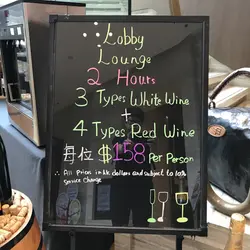 Lobby
Lounge
2 Hours
3 Types White Wine
+
4 Types Red Wine
每位 $158 Per Person
∴ All Prices in hk dollars and subject to 10%
Service Charge